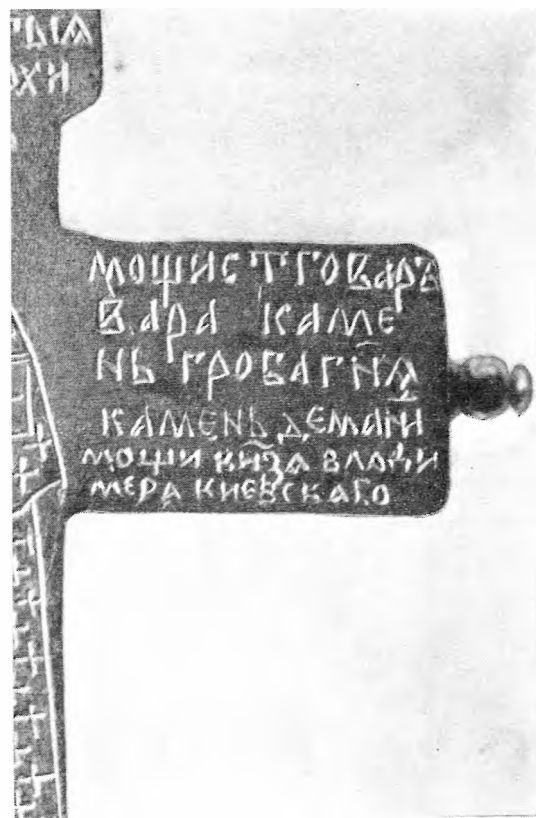 ТЫІА
ОХИ
МОЩИ СТ ГО ВАРЪ
ВАРА КАМЕ
НЬ ГРОБА ГНѦ
КАМЕНЬ ДЕМАНІ
МОЩИ КНЗА ВЛАДИ
МЕРА КИЕВСКАГО